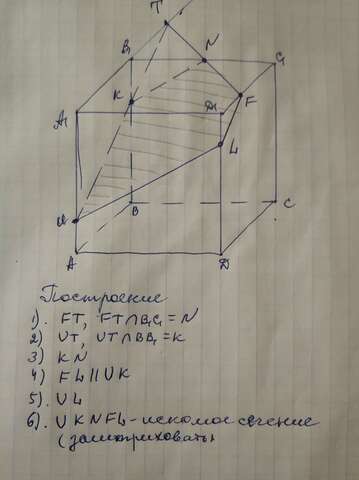 T
B₁ N C₁
K
A₁ D₁ F
L
U
B C
A D
Построение
1). FT, FT∩B₁C₁ = N
2) UT, UT∩BB₁ = K
3) KN
4) FL || UK
5). UL
6). UKNFL - искомое сечение
(заштриховать)